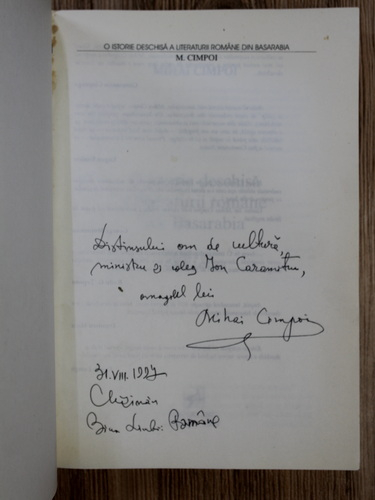 O ISTORIE DESCHISĂ A LITERATURII ROMÂNE DIN BASARABIA
M. CIMPOI
Distinsului om de cultură,
ministru și coleg Ion Caramitru,
omagiul lui
Mihai Cimpoi
31.VIII.1997
Chișinău
Limbii Române